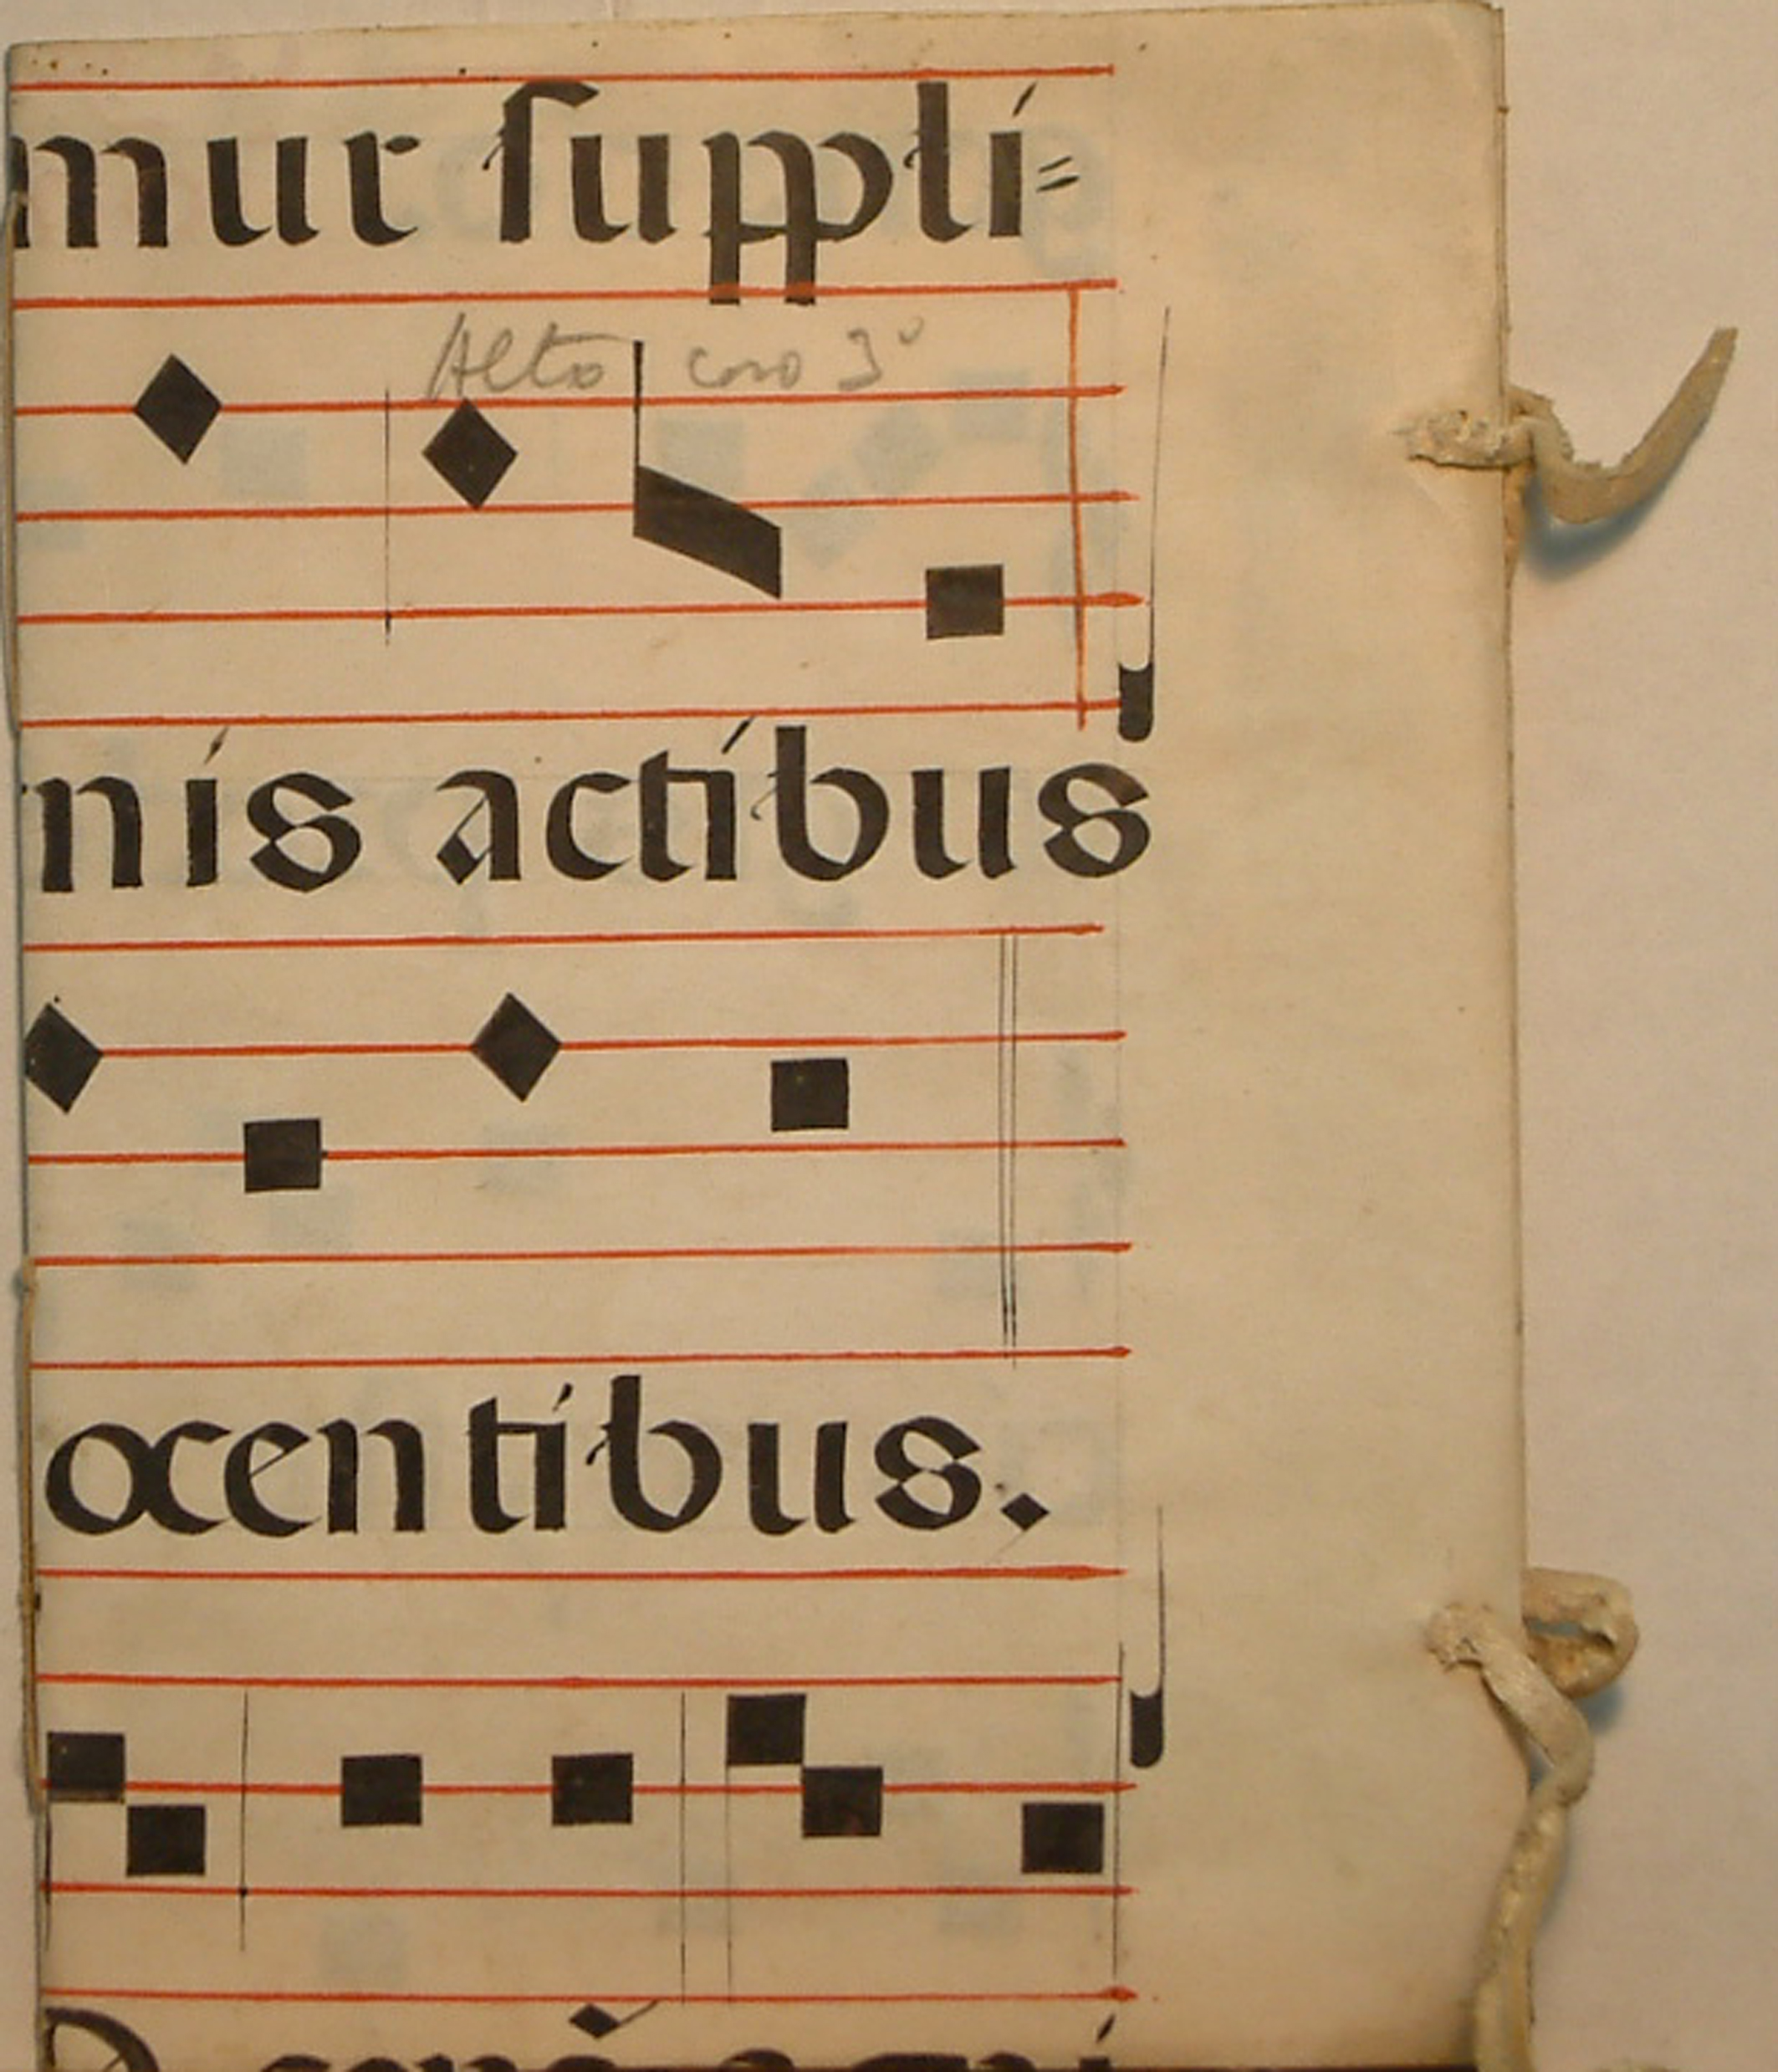 mur ſuppli=
Alto coro 3º
nis actibus
ocentibus.